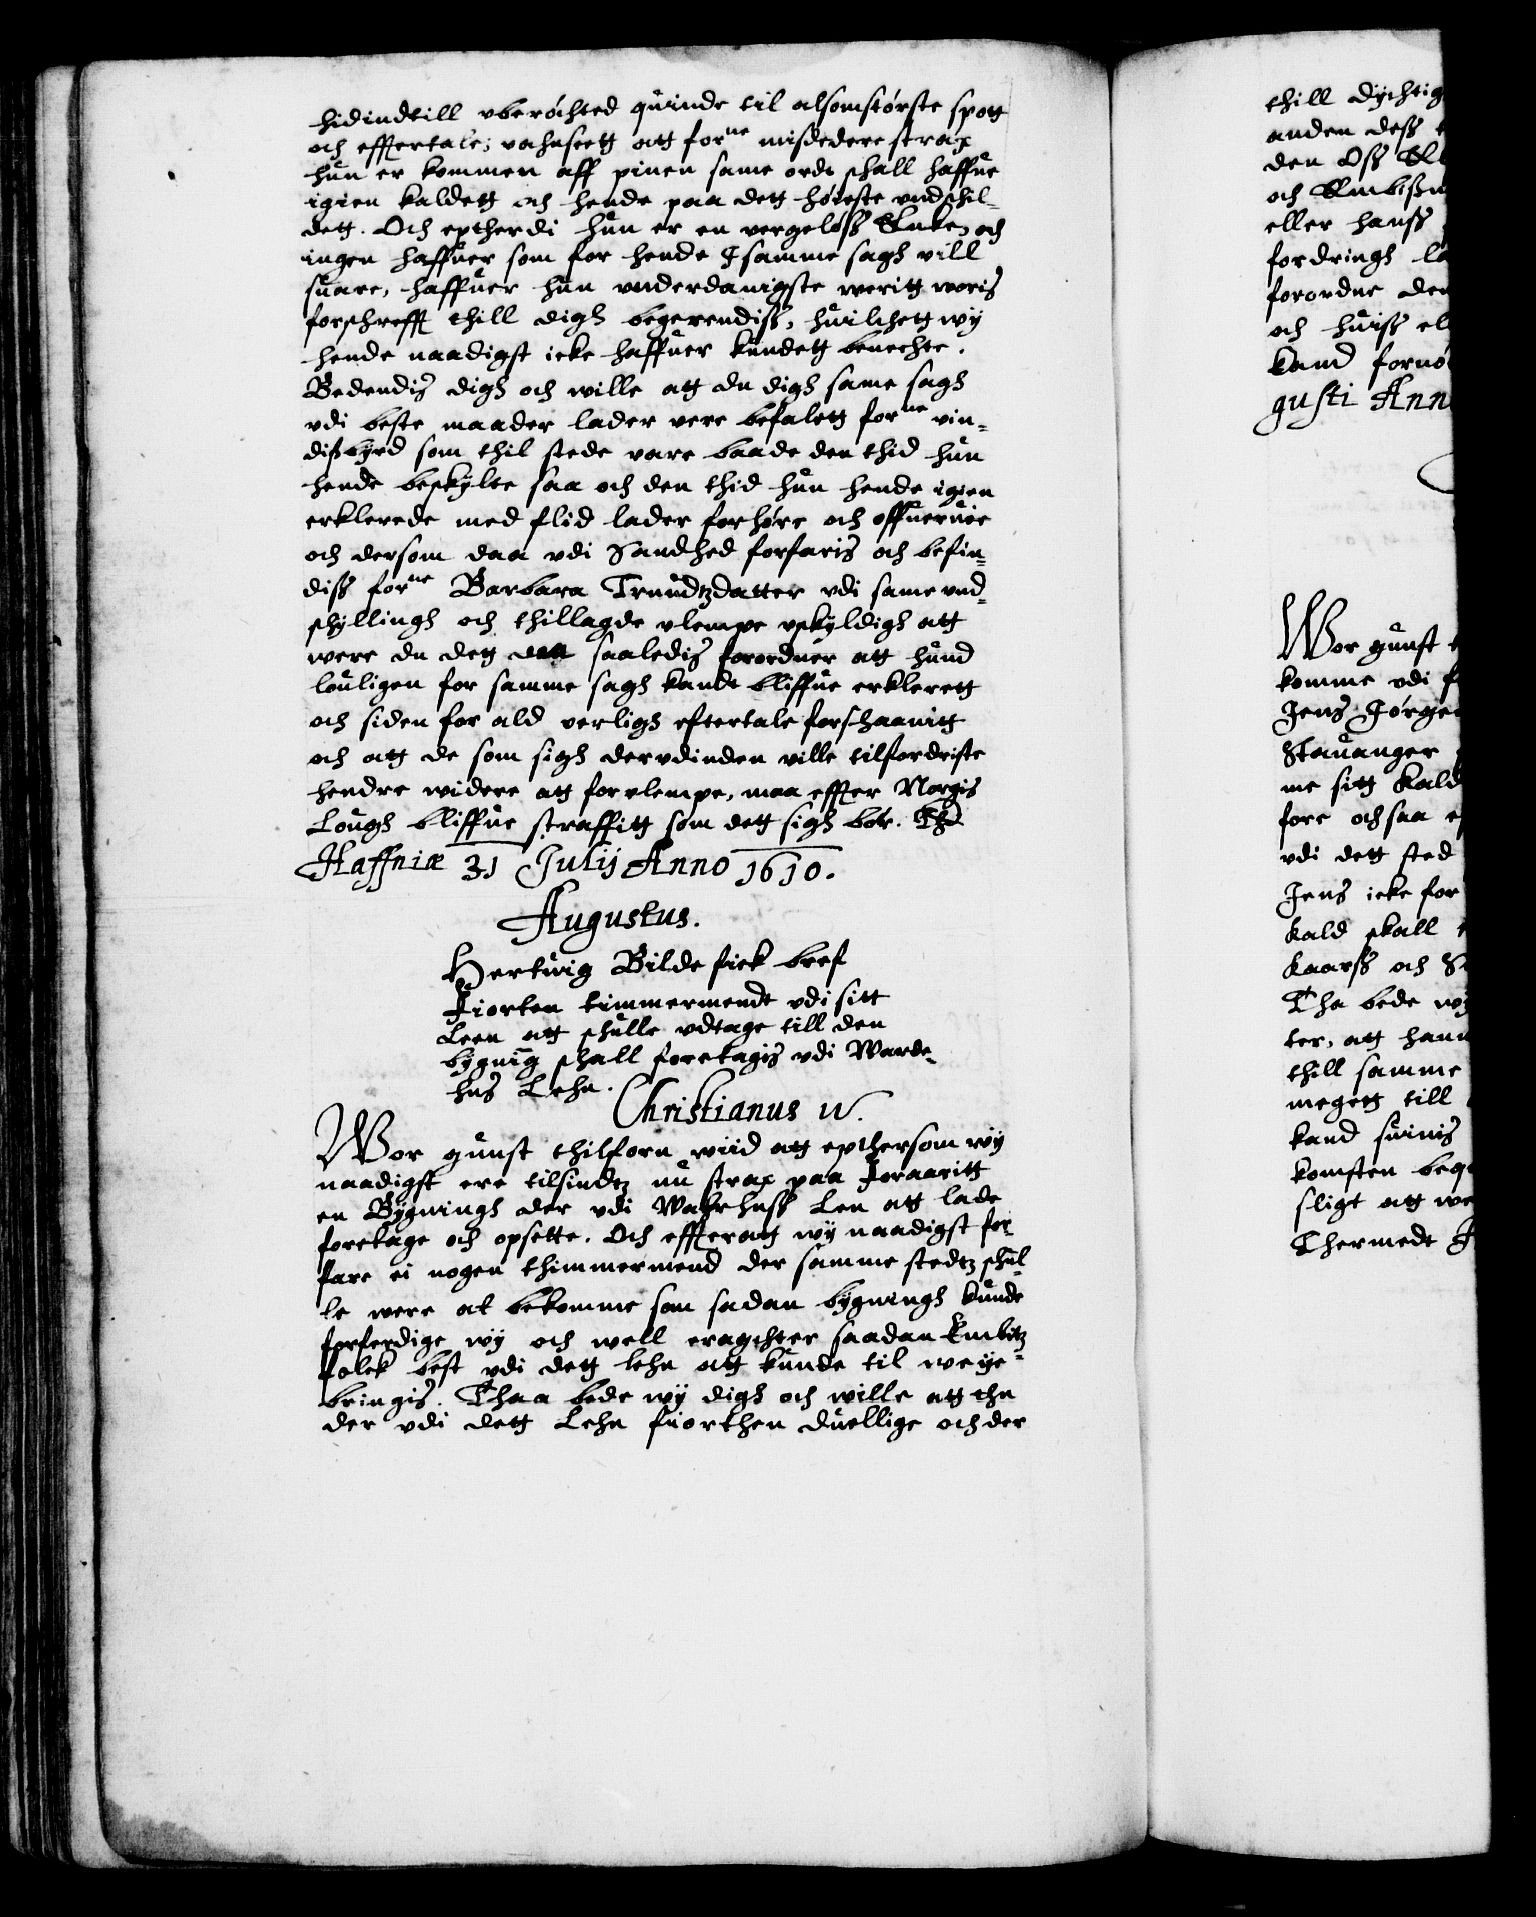 hidindtill vberöchted quinde til alsomstörste spott
och efftertale; vahnseett att forne misdedere strax
hun er kommen aff pinen same ordt schall haffue
igien kaldett och hende paa dett höieste vndschil-
dett. Och eptherdi hun er en vergelöss Encke, och
ingen haffuer som for hende I samme sagh vill
suare, haffuer hun vnderdanigste weritt woris
forschrefft thill digh begerendiss, huilchett wij
hende naadigst icke haffuer kundett benechte.
Bedendis digh och wille att du digh same sagh
vdi beste maader lader vere befalett forne vin-
dißbyrd som thil stede vare baade den thid hun
hende beskylte saa och den thid hun hende igien
erklerede med flid lader forhöre och offueruöie
och dersom daa vdi Sandhed forfaris och befin-
diss forne Barbara Trundtzdatter vdi same vnd-
schyllingh och thillagde vlempe vskyldigh att
were du dett saaledis forordner att hund
louligen for samme sagh kandt bliffue erklerett
och siden for ald verligh eftertale forschaanitt
och att de som sigh dervdinden ville tilfordriste
hendre widere att forvlempe, maa effter Norgis
Lough bliffue straffitt som dett sigh bör. Thd
Haffniæ 31 Julij Anno 1610.
Augustus.
Hertuig Bilde fick bref
Fiorten timmermendt vdi sitt
Leen att schulle vdtage till den
bÿgnig schall foretagis vdi Warde-
hus Lehn.
Christianus IV.
Wor gunst thilforn wiid att epthersom wij
naadigst ere tilsindtz nu strax paa Foraaritt
en Bÿgningh der vdi Wahrhuss Len att lade
foretage och opsette. Och effteratt wij naadigst for
fare ei nogen thimmermend der samme stedtz schul-
le were at bekomme som sadan bÿgningh kunde
forferdige wij och well eragchter saadan Embitz
folck best vdi dett lehn att kunde til weije-
bringis. Thaa bede wij digh och wille att thu
der vdi dett Lehn fiorthen duellige och der
thill dychtig
anden dess
den Oss
och Embißm
eller hanss
fordringh la
forordne den
och huiss el
kand fornö
gusti Ann
Wor gunst
komme vdi
Jens Jörge
Stauanger
me sitt Kald
fore och saa
vdi dett sted
Jens icke for
Kald skall
Kaarss och S
Tha bede wij
ter, att hann
thill samme
megett till
kand suinis
komsten beq
sligt att we
Thermedt